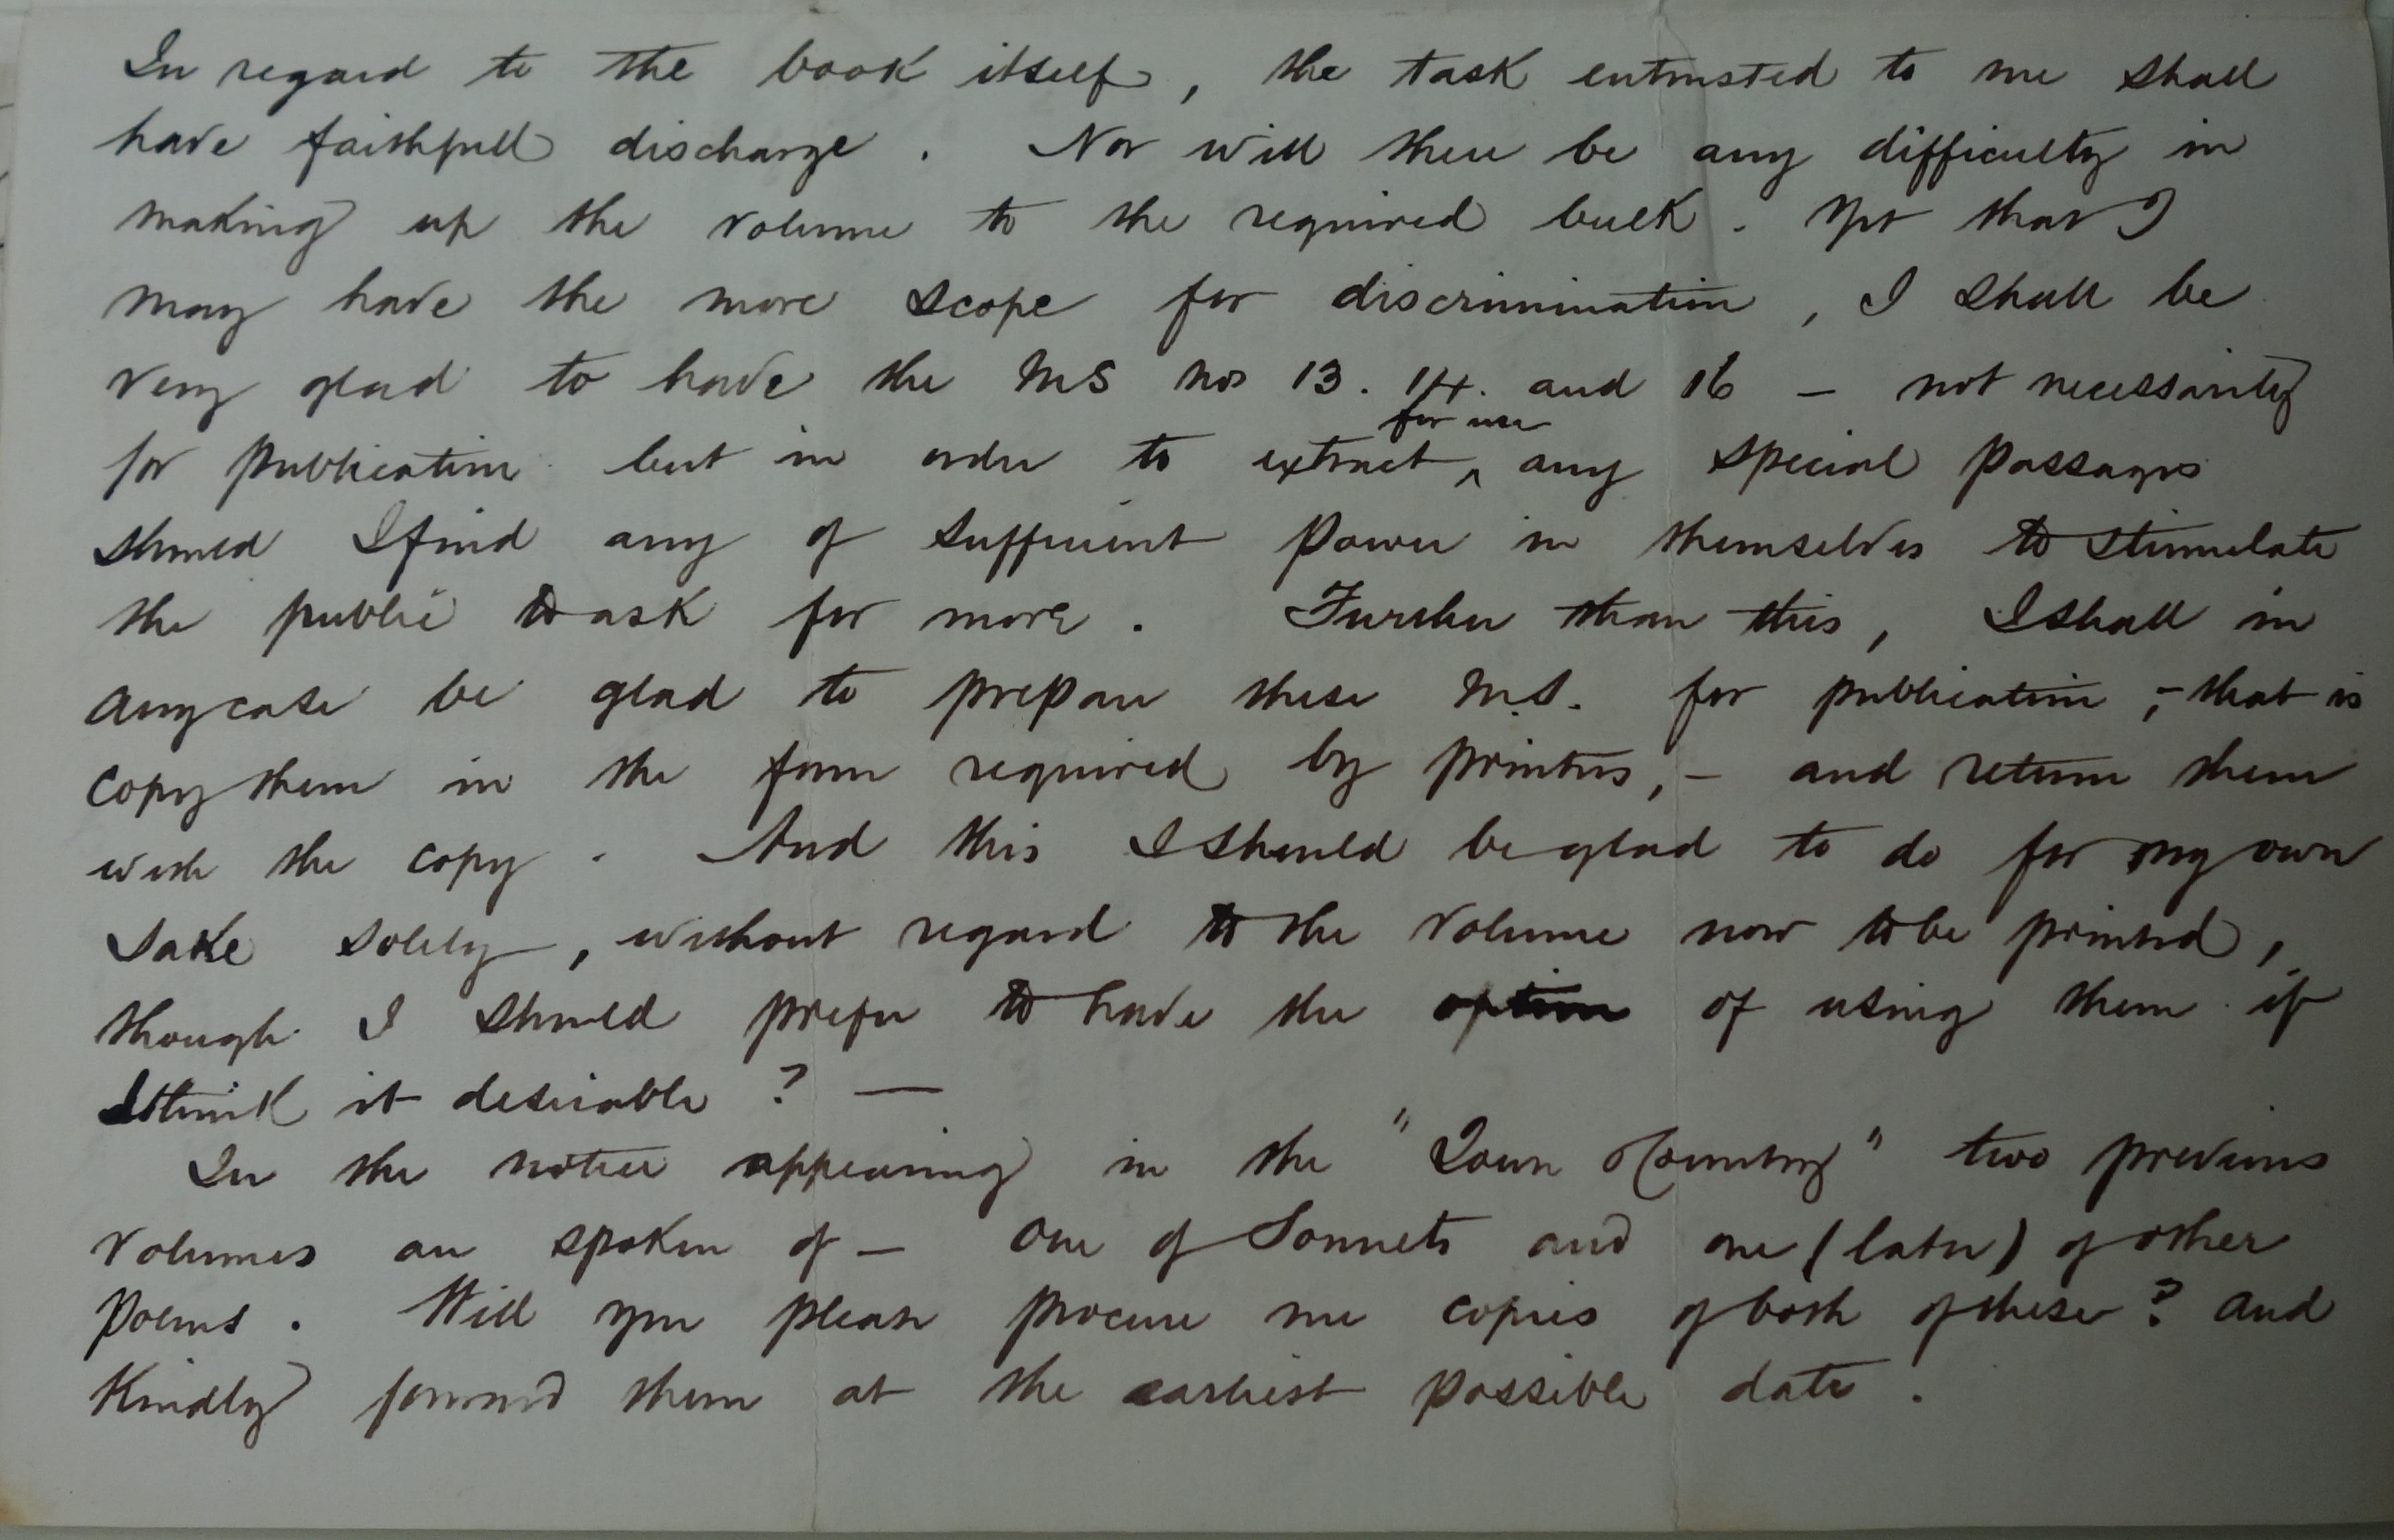 In regard to the book itself, the task entrusted to me shall
have faithfull discharge. Nor will there be any difficulty in
making up the volume to the required bulk. Yet that I
may have the more scope for discrimination, I shall be
very glad to have the MS nos 13. 14. and 16 – not necessarily
for publication but in order to extract ^for use any special passages
should I find any of sufficient power in themselves to stimulate
the public to ask for more. Further than this, I shall in
any case be glad to prepare these M.S. for publication, – that is
copy them in the form required by printers, – and return them
with the copy. And this I should be glad to do for my own
sake solely, without regard to the volume now to be printed,
though I should prefer to have the option of using them if
I think it desirable? —
In the notice appearing in the "Town & Country" two previous
volumes are spoken of – one of Sonnets and one (later) of other
poems. Will you please procure me copies of both of these? and
kindly forward them at the earliest possible date.